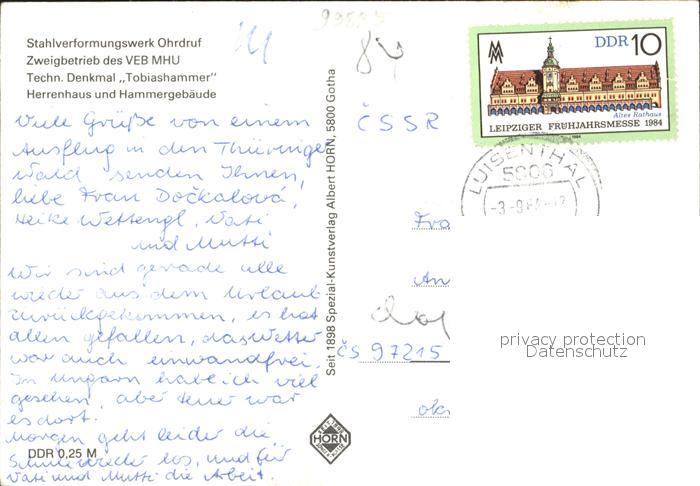 Stahlverformungswerk Ohrdruf
Zweigbetrieb des VEB MHU
Techn. Denkmal „Tobiashammer"
Herrenhaus und Hammergebäude
Viele Grüße von einem
Ausflug in den Thüringer
Wald senden Ihnen,
liebe Frau Dočkalová,
Heike Wettengl, Vati
und Mutti
Wir sind gerade alle
wieder aus dem Urlaub
zurückgekommen, es hat
allen gefallen, das Wetter
war auch einwandfrei.
In Ungarn habe ich viel
gesehen, aber teuer war
es dort.
Morgen geht leider die
Schule wieder los, und für
Vati und Mutti die Arbeit.
DDR 0,25 M
Seit 1898 Spezial-Kunstverlag Albert HORN, 5800 Gotha
HORN
DDR 10
Altes Rathaus
LEIPZIGER FRÜHJAHRSMESSE 1984
LUISENTHAL
5806
-3.-9.84-12
ČSSR
Fra
An
ČS 97215
okr
privacy protection
Datenschutz